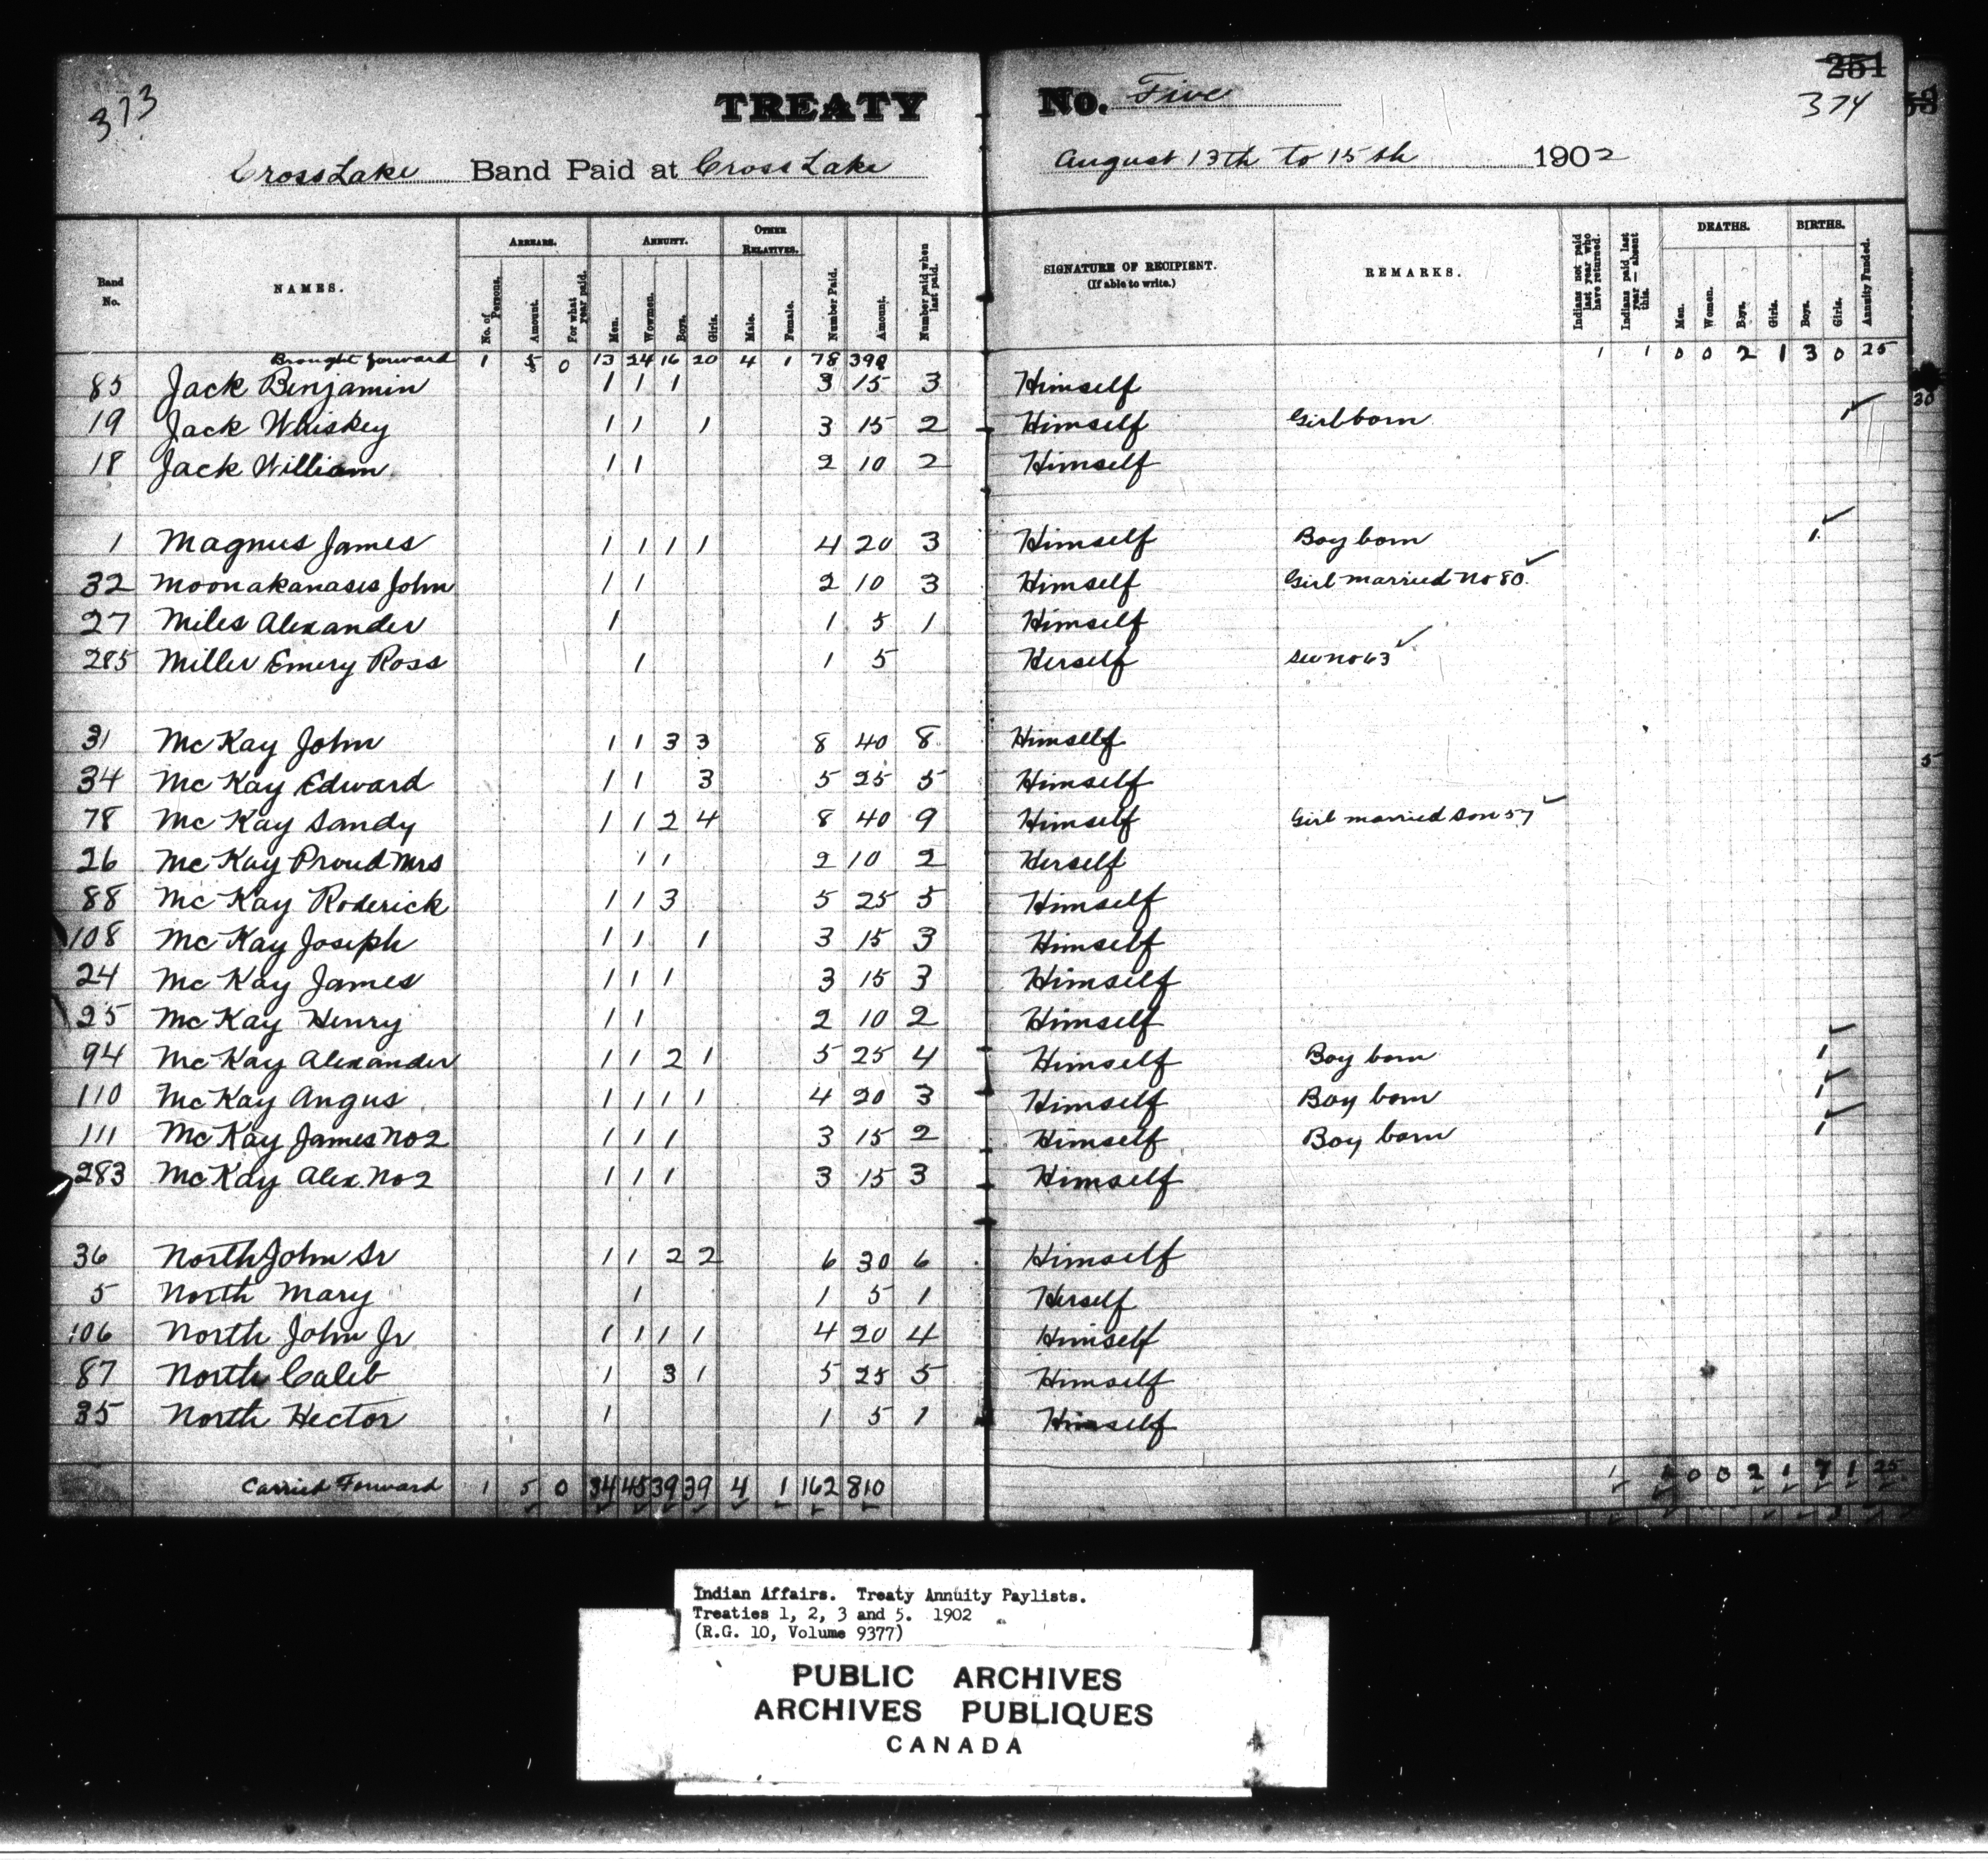 373 TREATY No. Five 251 374
Cross Lake Band Paid at Cross Lake August 13th to 15th 1902
Band No. NAMES. ARREARS. No. of Persons. Amount. For what year paid. ANNUITY. Men. Wowmen. Boys. Girls. OTHER RELATIVES. Male. Female. Number Paid. Amount. Number paid when last paid. SIGNATURE OF RECIPIENT. (If able to write.) REMARKS. Indians not paid last year who have returned. Indians paid last year — absent this. DEATHS. Men. Women. Boys. Girls. BIRTHS. Boys. Girls. Annuity Funded.
Brought forward 1 5 0 13 24 16 20 4 1 78 390 1 1 0 0 2 1 3 0 25
85 Jack Benjamin 1 1 1 3 15 3 Himself
19 Jack Whiskey 1 1 1 3 15 2 Himself Girl born 1
18 Jack William 1 1 2 10 2 Himself
1 Magnus James 1 1 1 1 4 20 3 Himself Boy born 1
32 Moonakanases John 1 1 2 10 3 Himself Girl married No 80
27 Miles Alexander 1 1 5 1 Himself
285 Miller Emery Ross 1 1 5 Herself See no 63
31 McKay John 1 1 3 3 8 40 8 Himself
34 McKay Edward 1 1 3 5 25 5 Himself
78 McKay Sandy 1 1 2 4 8 40 9 Himself Girl married son 57
26 McKay Proud Mrs 1 1 2 10 2 Herself
88 McKay Roderick 1 1 3 5 25 5 Himself
108 McKay Joseph 1 1 1 3 15 3 Himself
24 McKay James 1 1 1 3 15 3 Himself
25 McKay Henry 1 1 2 10 2 Himself
94 McKay Alexander 1 1 2 1 5 25 4 Himself Boy born 1
110 McKay Angus 1 1 1 1 4 20 3 Himself Boy born 1
111 McKay James No 2 1 1 1 3 15 2 Himself Boy born 1
283 McKay Alex. No 2 1 1 1 3 15 3 Himself
36 North John Sr 1 1 2 2 6 30 6 Himself
5 North Mary 1 1 5 1 Herself
106 North John Jr 1 1 1 1 4 20 4 Himself
87 North Caleb 1 3 1 5 25 5 Himself
35 North Hector 1 1 5 1 Himself
Carried Forward 1 5 0 34 45 39 39 4 1 162 810 1 1 0 0 2 1 7 1 25
Indian Affairs. Treaty Annuity Paylists.
Treaties 1, 2, 3 and 5. 1902
(R.G. 10, Volume 9377)
PUBLIC ARCHIVES
ARCHIVES PUBLIQUES
CANADA